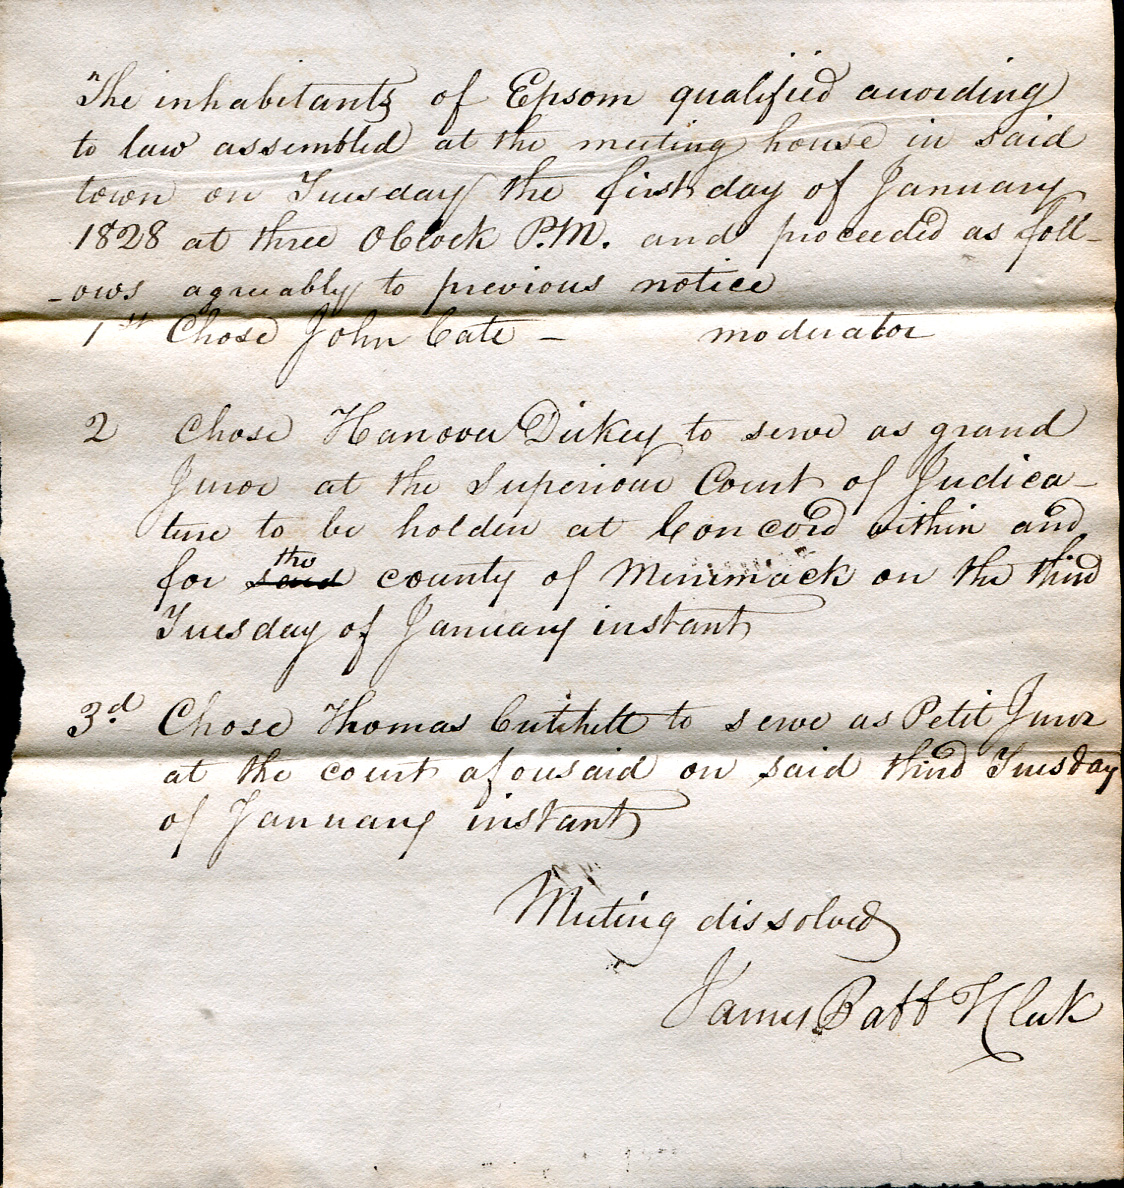 The inhabitants of Epsom qualified according
to law assembled at the meeting house in said
town on Tuesday the first day of January
1828 at three OClock P.M. and proceeded as foll-
-ows agreeably to previous notice
1st Chose John Cate - moderator
2 Chose Hanover Dickey to serve as grand
Juror at the Superiour Court of Judica-
ture to be holden at Concord within and
for the county of Merrimack on the third
Tuesday of January instant
3d. Chose Thomas to serve as Petit Juror
at the court aforesaid on said third Tuesday
of January instant
Meeting dissolved
James Babb T Clerk